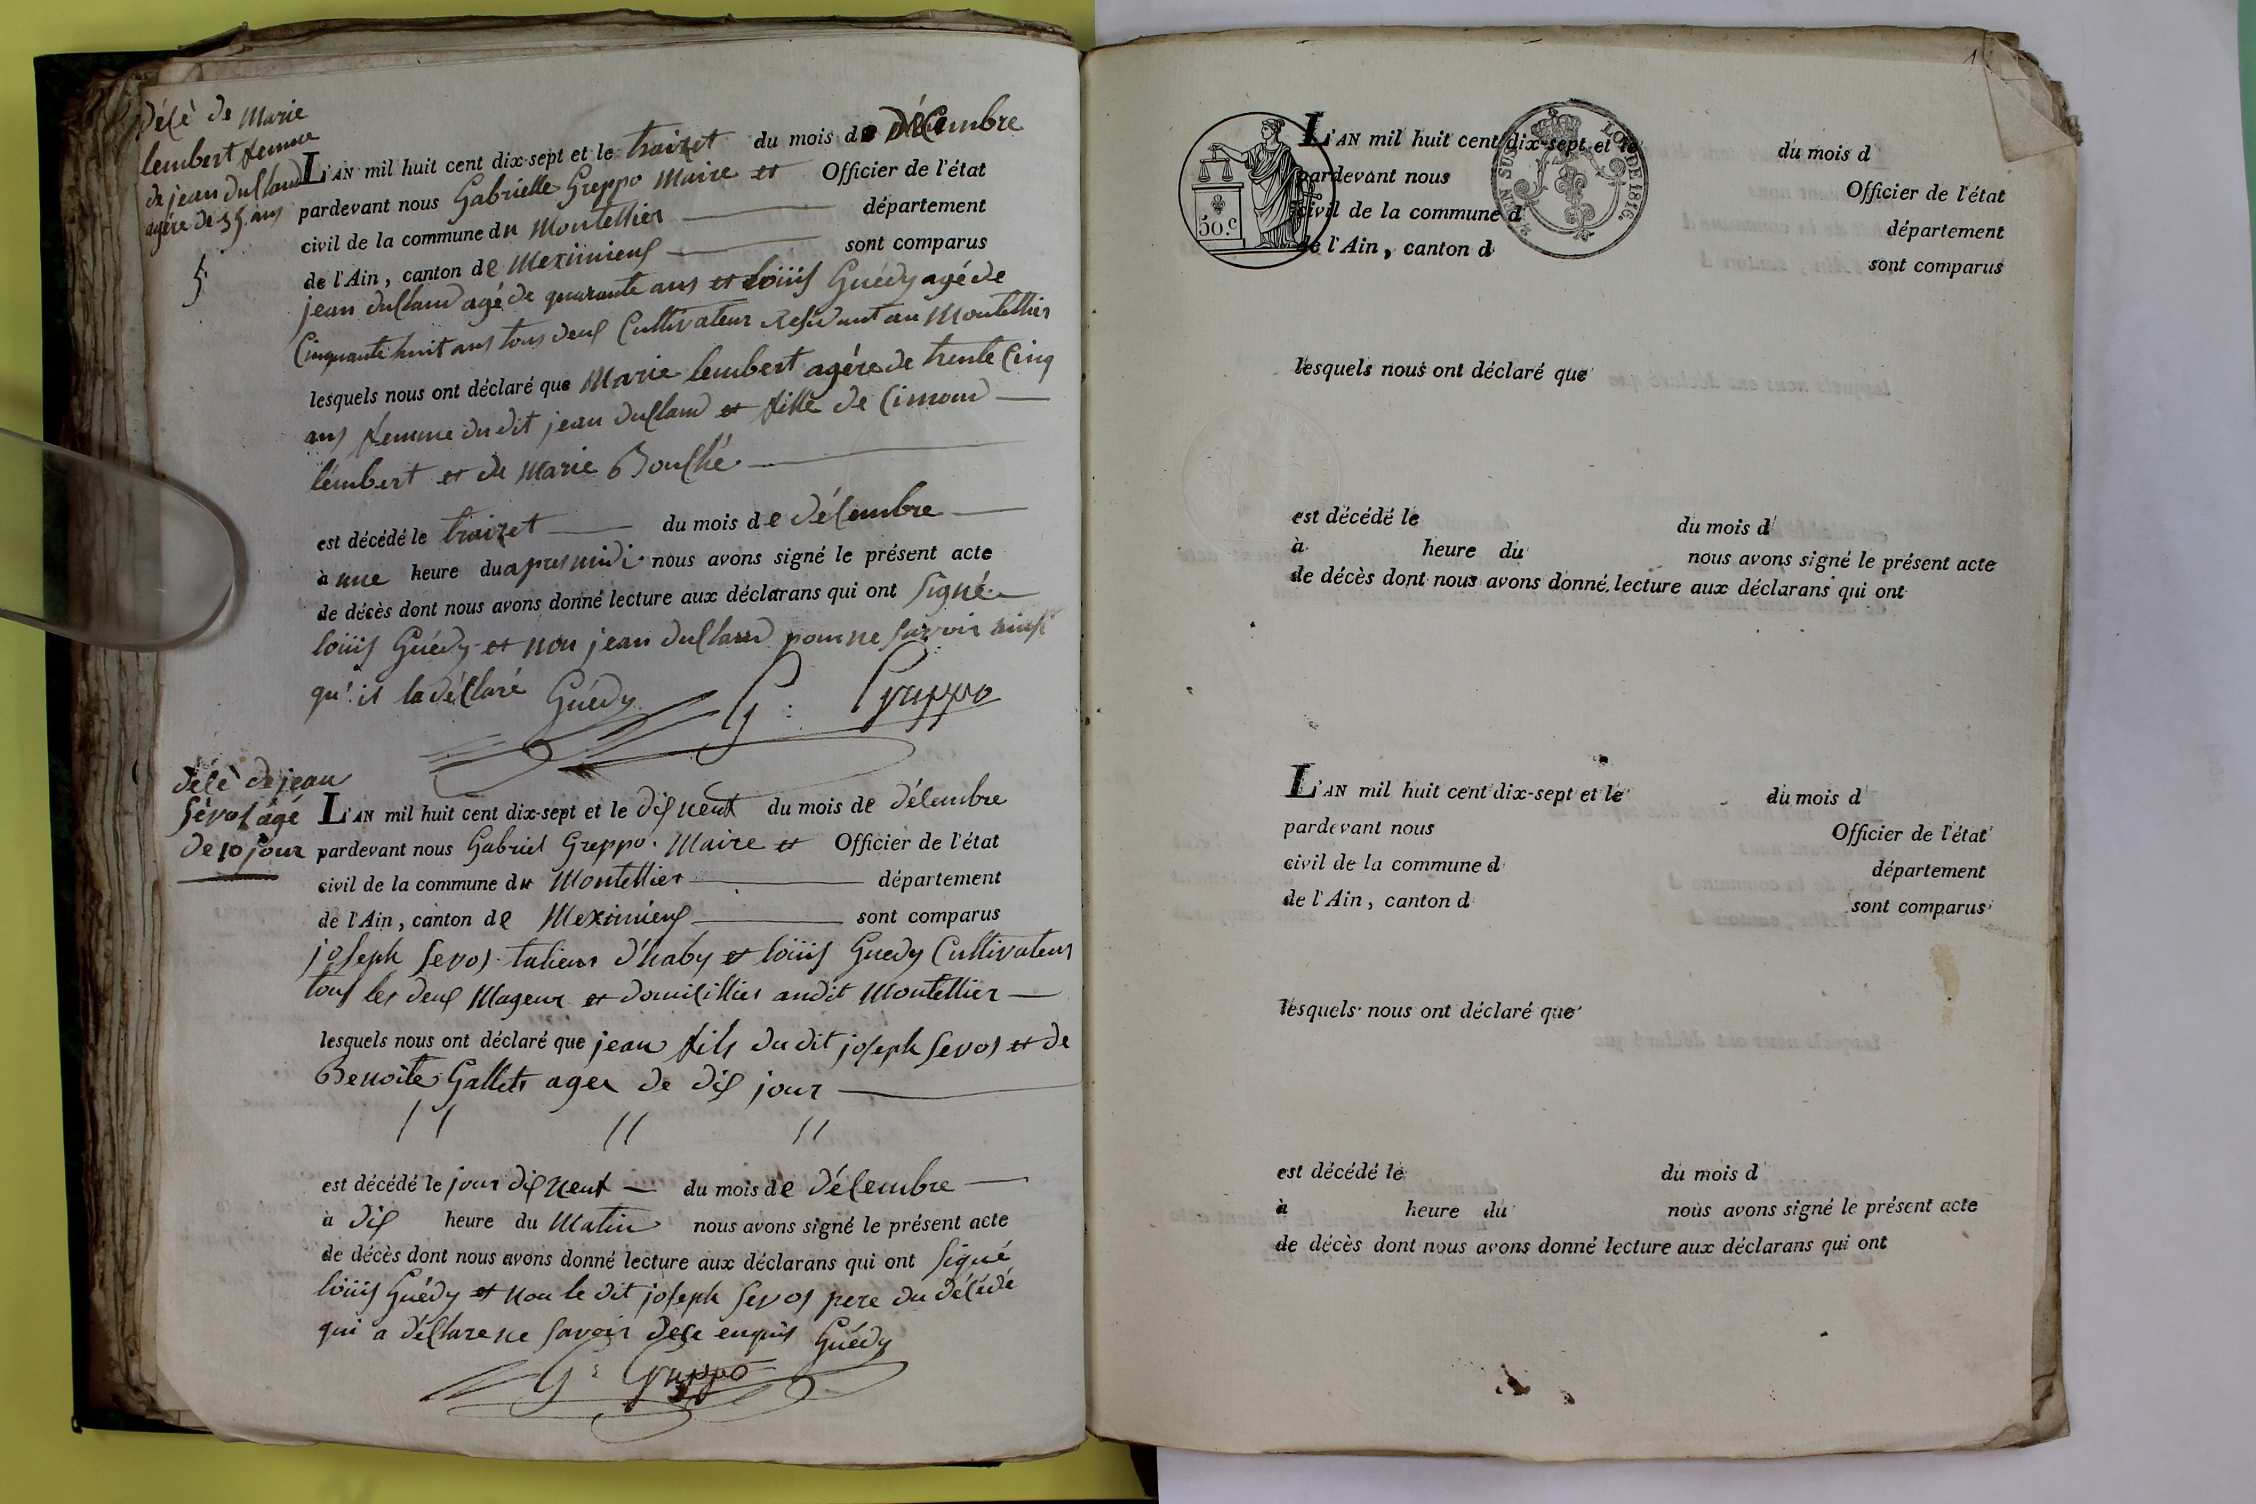 Décè de Marie
lembert femme
de jean dusland
agére de 35 ans
L'AN mil huit cent dix-sept et le traizet du mois de Décembre
pardevant nous Gabrielle Greppo Maire et Officier de l'état
civil de la commune du Montellier département
de l'Ain, canton de Meximieux sont comparus
jean dusland agé de quarante ans et loüis Guédy agé de
Cinquante huit ans tous deux Cultivateur residant au Montellier
lesquels nous ont déclaré que Marie lembert agére de trente Cinq
ans femme du dit jean dusland et fille de Cimond
lembert et de Marie Bouché
est décédé le traizet du mois de décembre
à une heure du apres midi nous avons signé le présent acte
de décès dont nous avons donné lecture aux déclarans qui ont signé
loüis Guédy et non jean dusland pour ne savoir ainsi
qu'il la déclaré Guédy G: Greppo
Décè de jean
Sevos agé
de 10 jour
L'AN mil huit cent dix-sept et le dix neuf du mois de décembre
pardevant nous Gabriel Greppo Maire et Officier de l'état
civil de la commune du Montellier département
de l'Ain, canton de Meximieux sont comparus
joseph Sevos talieur d'haby et loüis Guedy Cultivateur
tous les deux Mageur et domicillier audit Montellier
lesquels nous ont déclaré que jean fils du dit joseph Sevos et de
Benoite Gallet ager de dix jour
// // //
est décédé le jour dix neuf du mois de décembre
à dix heure du Matin nous avons signé le présent acte
de décès dont nous avons donné lecture aux déclarans qui ont signé
loüis Guédy et non le dit joseph Sevos pere du décédé
qui a déclare ne savoir de ce enquis Guédy
G: Greppo
1
50.C
EN SUS LOI DE 1816.
L'AN mil huit cent dix-sept et le du mois d
pardevant nous Officier de l'état
civil de la commune d département
de l'Ain, canton d sont comparus
lesquels nous ont déclaré que
est décédé le du mois d
à heure du nous avons signé le présent acte
de décès dont nous avons donné lecture aux déclarans qui ont
L'AN mil huit cent dix-sept et le du mois d
pardevant nous Officier de l'état
civil de la commune d département
de l'Ain, canton d sont comparus
lesquels nous ont déclaré que
est décédé le du mois d
à heure du nous avons signé le présent acte
de décès dont nous avons donné lecture aux déclarans qui ont